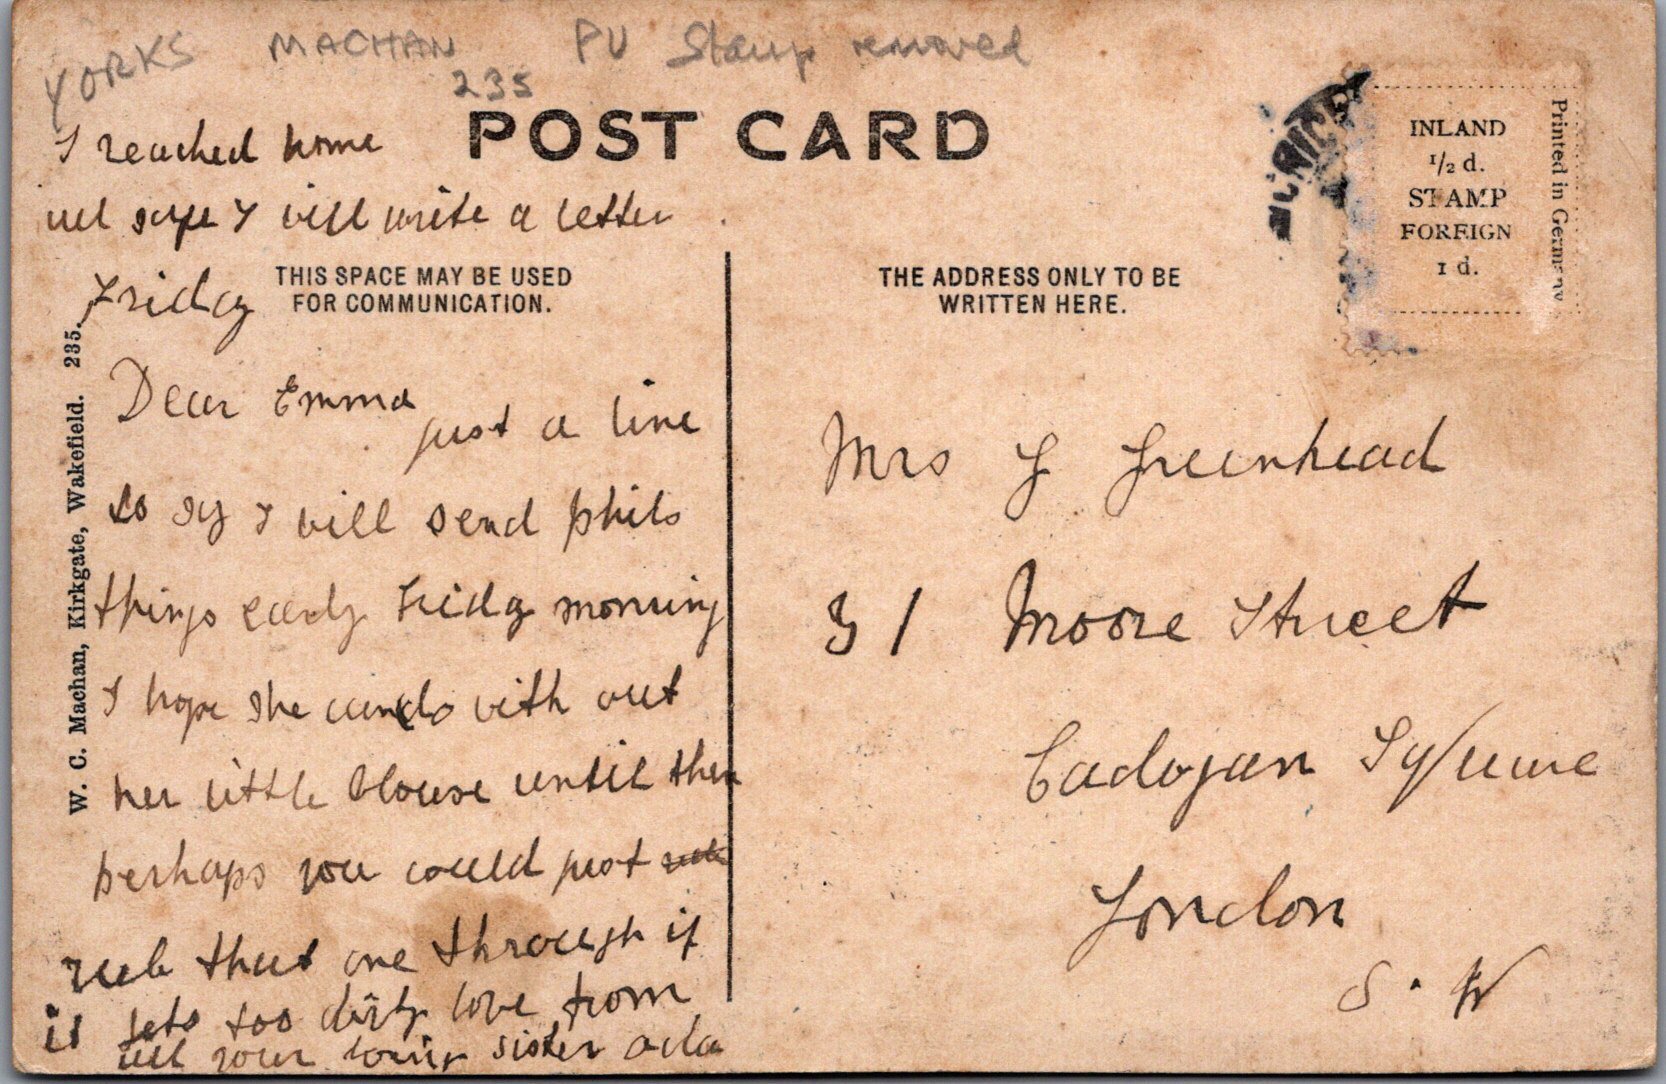 YORKS MACHAN PU Stamp removed
235
POST CARD
I reached home
all safe I will write a letter
Friday
THIS SPACE MAY BE USED
FOR COMMUNICATION.
Dear Emma
just a line
to sy I will send phils
things early Fridy morning
I hope she can do with out
her little blouse until then
perhaps you could just rub
rub that one through if
it gets too dirty love from
all your loving sister ada
W. C. Machan, Kirkgate, Wakefield. 235.
THE ADDRESS ONLY TO BE
WRITTEN HERE.
INLAND
1/2 d.
STAMP
FOREIGN
1 d.
Printed in Germany
Mrs G Greenhead
31 Moore Street
Cadogan Square
London
S. W